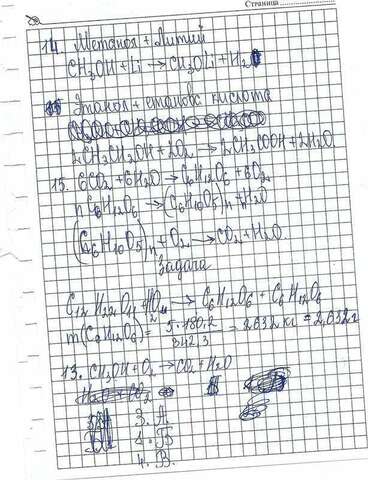 Страница
14. Метанол + литий
CH3OH + Li → CH3OLi + H2
Етанол + етанова кислота
2CH3CH2OH + 2O2 → 2CH3COOH + 2H2O
15. 6CO2 + 6H2O → C6H12O6 + 6O2
n C6H12O6 → (C6H10O5)n + nH2O
(C6H10O5)n + O2 → CO2 + H2O
Задача
C12H22O11 + H2O → C6H12O6 + C6H12O6
m(C6H12O6) = 5·180,2 / 342,3 = 2632 кг = 2,632
13. CH3OH + O2 → CO2 + H2O
3. А
Б
4. В.